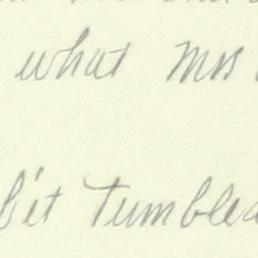 what Mrs
bit Tumbled